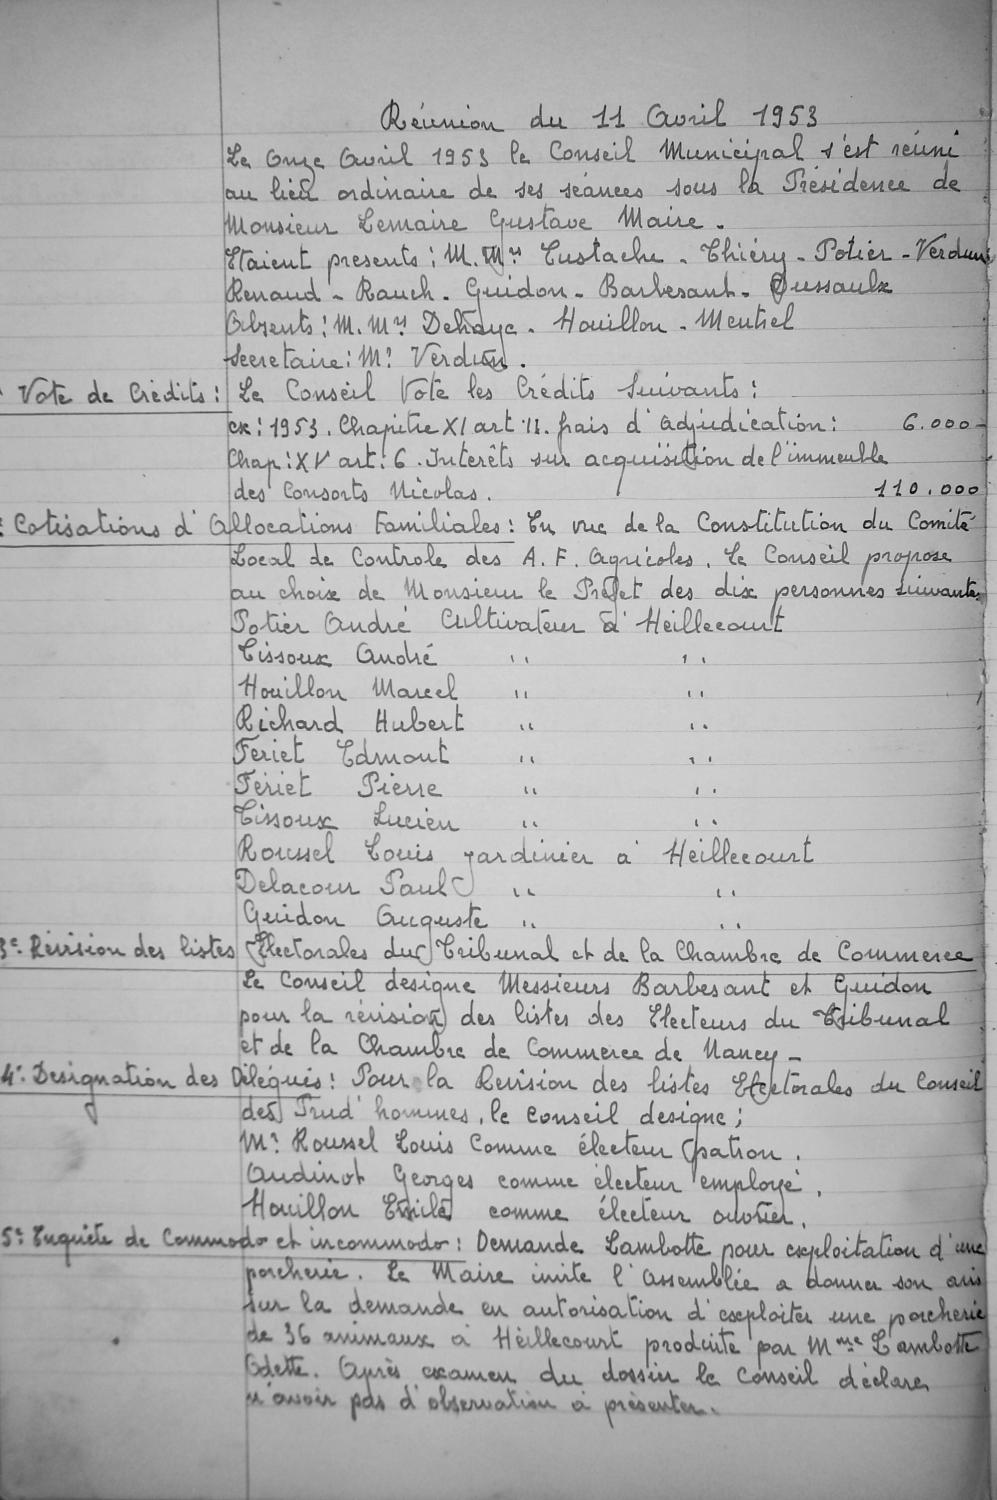 Réunion du 11 Avril 1953
Le onze Avril 1953 le Conseil Municipal s'est réuni
au lieu ordinaire de ses séances sous la Présidence de
Monsieur Lemaire Gustave Maire.
Etaient presents : M. Mrs Eustache - Thiéry - Potier - Verdun
Renaud - Rauch - Guidon - Barbesant - Dussaulx
Absents : M. Mrs Dehaye - Houillon - Meutiel
Secretaire : Mr Verdun.
Vote de Crédits : Le Conseil Vote les Crédits Suivants :
ex : 1953. Chapitre XI art 11. frais d'adjudication : 6.000-
Chap : XV art : 6. Interêts sur acquisition de l'immeuble
des Consorts Nicolas. 110.000
Cotisations d'Allocations Familiales : En vue de la Constitution du Comité
Local de Controle des A. F. Agricoles, le Conseil propose
au choix de Monsieur le Préfet des dix personnes suivantes
Potier André Cultivateur à Heillecourt
Tissoux André " "
Houillon Marcel " "
Richard Hubert " "
Feriet Edmont " "
Fériet Pierre " "
Tissoux Lucien " "
Roussel Louis jardinier à Heillecourt
Delacour Paul " "
Guidon Auguste " "
3e Révision des listes Electorales du Tribunal et de la Chambre de Commerce
Le Conseil designe Messieurs Barbesant et Guidon
pour la révision des listes des Electeurs du Tribunal
et de la Chambre de Commerce de Nancy -
4e Designation des Délégués : Pour la Revision des listes Electorales du Conseil
des Prud'hommes, le conseil designe ;
Mr Roussel Louis Comme électeur patron.
Audinot Georges comme électeur employé,
Houillon Emile comme électeur ouvrier.
5e Enquête de Commodo et incommodo : Demande Lambotte pour exploitation d'une
porcherie. Le Maire invite l'Assemblée a donner son avis
sur la demande en autorisation d'exploiter une porcherie
de 36 animaux à Héillecourt produite par Mme Lambotte
Odette. Après examen du dossier le Conseil déclare
n'avoir pas d'observation à présenter.